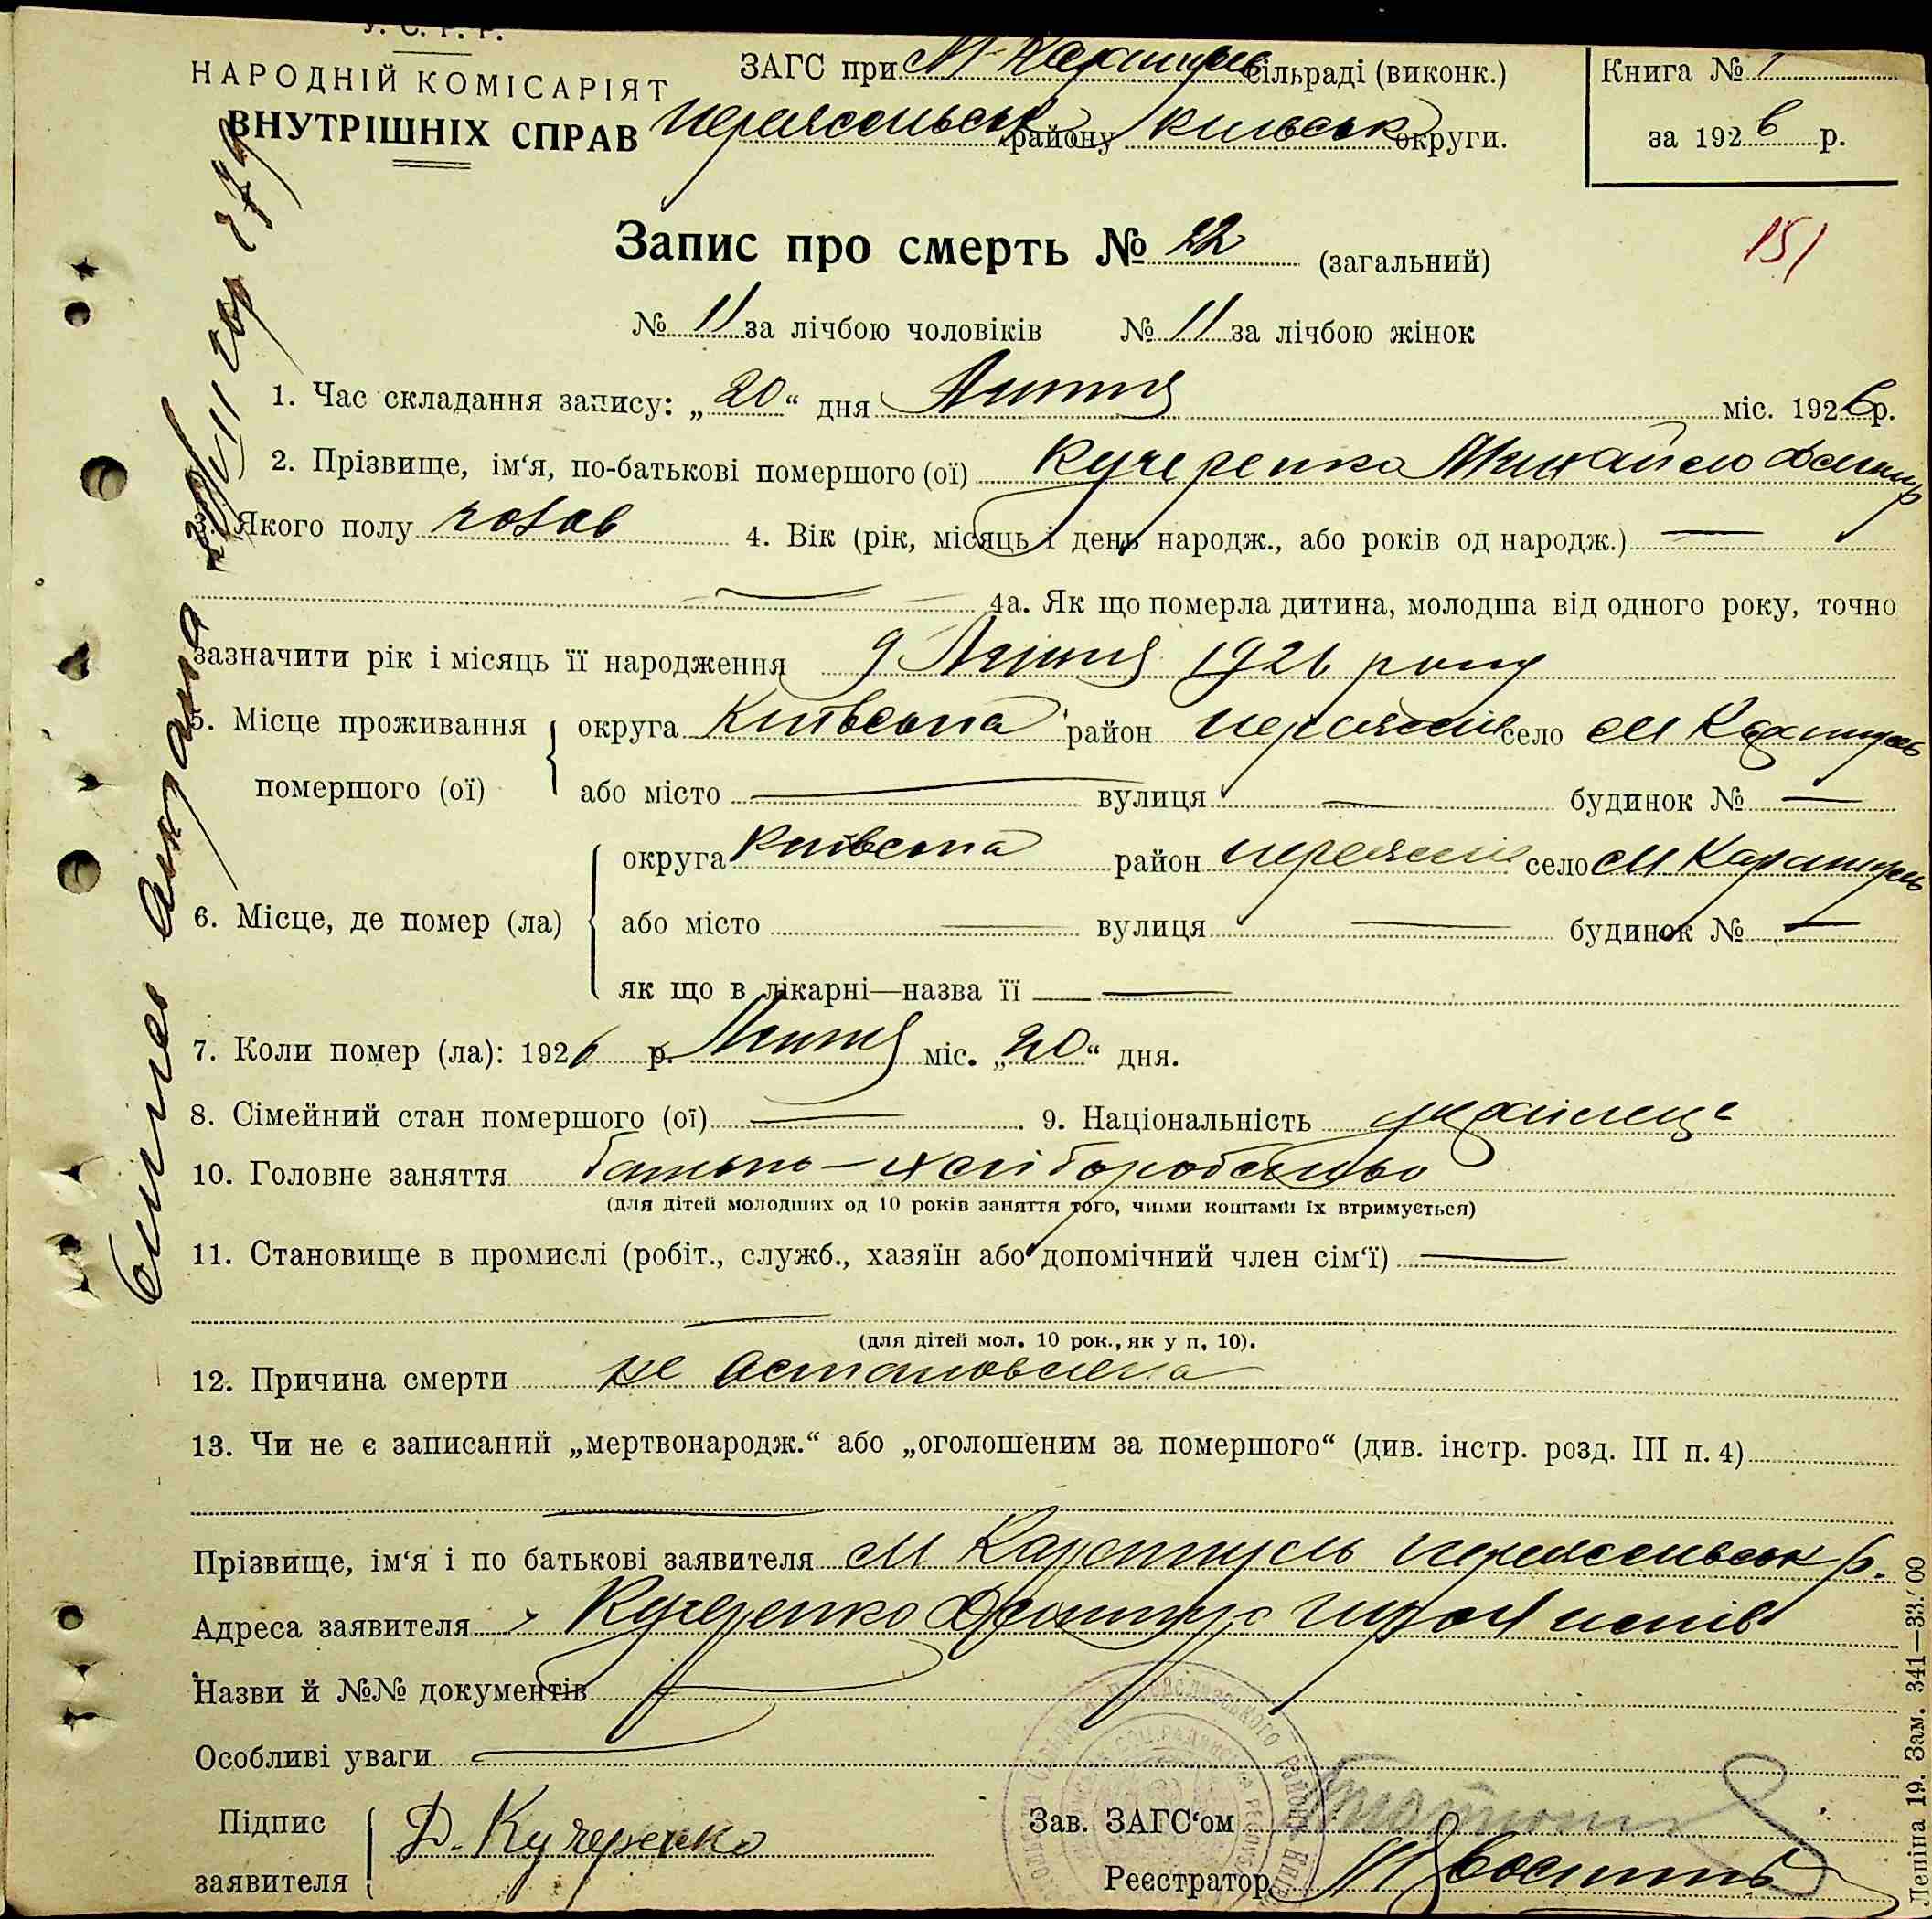 У. С. Р. Р.
НАРОДНІЙ КОМІСАРІЯТ
ВНУТРІШНІХ СПРАВ
ЗАГС при М-Каратуль сільраді (виконк.)
району округи.
Книга № 1
за 1926 р.
151
Запис про смерть № 22 (загальний)
№ 11 за лічбою чоловіків № 11 за лічбою жінок
1. Час складання запису: „20“ дня Липня міс. 1926 р.
2. Прізвище, ім‘я, по-батькові помершого (ої) Кучеренко Михайло
3. Якого полу чолов 4. Вік (рік, місяць і день народж., або років од народж.) —
— 4а. Як що померла дитина, молодша від одного року, точно
зазначити рік і місяць її народження 9 1926 року
5. Місце проживання помершого (ої) округа Київська район село М Каратуль
або місто — вулиця — будинок № —
6. Місце, де помер (ла) округа Київська район село М Каратуль
або місто — вулиця — будинок № —
як що в лікарні—назва її —
7. Коли помер (ла): 1926 р. Липня міс. „20“ дня.
8. Сімейний стан помершого (ої) — 9. Національність українець
10. Головне заняття батько — хліборобство
(для дітей молодших од 10 років заняття того, чиїми коштами їх втримується)
11. Становище в промислі (робіт., служб., хазяїн або допомічний член сім‘ї) —
—
(для дітей мол. 10 рок., як у п, 10).
12. Причина смерти не
13. Чи не є записаний „мертвонародж.“ або „оголошеним за помершого“ (див. інстр. розд. III п. 4)
—
Прізвище, ім‘я і по батькові заявителя М Каратуль р.
Адреса заявителя Кучеренко
Назви й №№ документів —
Особливі уваги —
Підпис заявителя Д. Кучеренко
Зав. ЗАГС‘ом
Реєстратор
Леніна 19. Зам. 341—33.